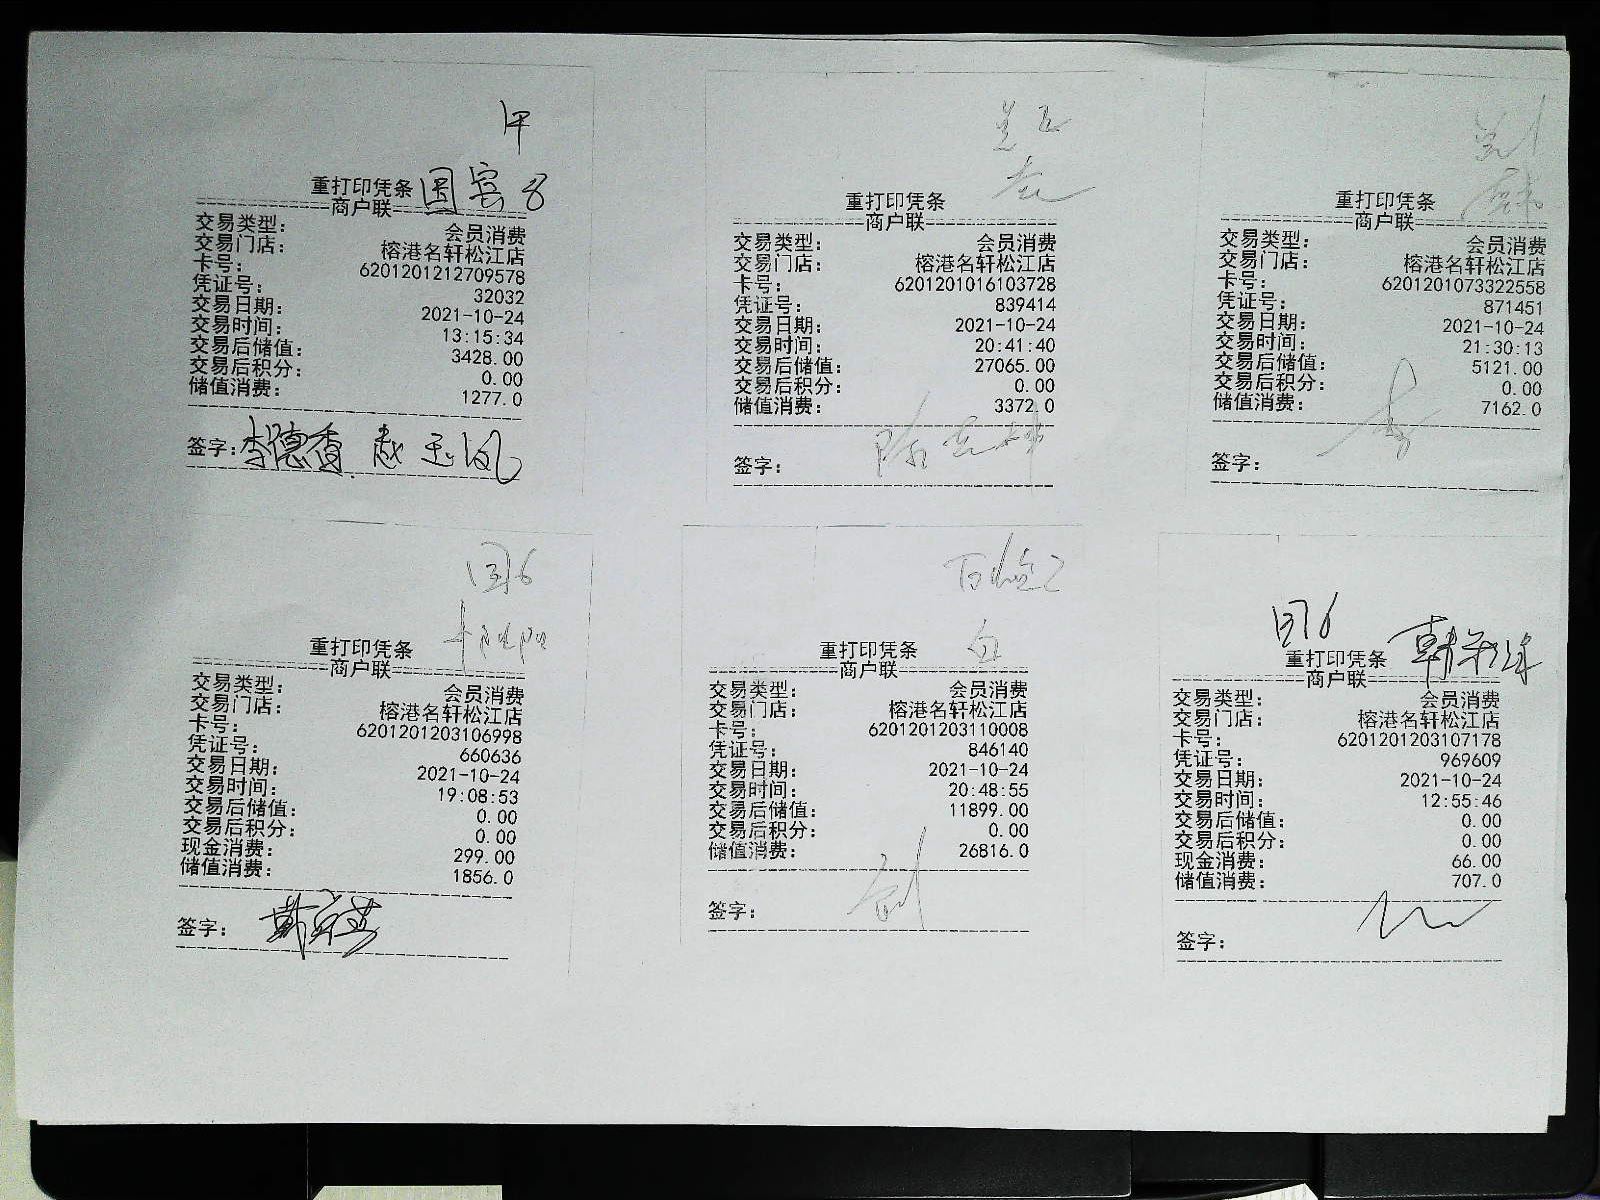 国宾8
重打印凭条
商户联
交易类型: 会员消费
交易门店: 榕港名轩松江店
卡号: 6201201212709578
凭证号: 32032
交易日期: 2021-10-24
交易时间: 13:15:34
交易后储值: 3428.00
交易后积分: 0.00
储值消费: 1277.0
签字: 李德香 赵玉凤
重打印凭条
商户联
交易类型: 会员消费
交易门店: 榕港名轩松江店
卡号: 6201201016103728
凭证号: 839414
交易日期: 2021-10-24
交易时间: 20:41:40
交易后储值: 27065.00
交易后积分: 0.00
储值消费: 3372.0
签字:
重打印凭条
商户联
交易类型: 会员消费
交易门店: 榕港名轩松江店
卡号: 6201201073322558
凭证号: 871451
交易日期: 2021-10-24
交易时间: 21:30:13
交易后储值: 5121.00
交易后积分: 0.00
储值消费: 7162.0
签字:
国6
重打印凭条
商户联
交易类型: 会员消费
交易门店: 榕港名轩松江店
卡号: 6201201203106998
凭证号: 660636
交易日期: 2021-10-24
交易时间: 19:08:53
交易后储值: 0.00
交易后积分: 0.00
现金消费: 299.00
储值消费: 1856.0
签字:
重打印凭条
商户联
交易类型: 会员消费
交易门店: 榕港名轩松江店
卡号: 6201201203110008
凭证号: 846140
交易日期: 2021-10-24
交易时间: 20:48:55
交易后储值: 11899.00
交易后积分: 0.00
储值消费: 26816.0
签字:
国6
重打印凭条
商户联
交易类型: 会员消费
交易门店: 榕港名轩松江店
卡号: 6201201203107178
凭证号: 969609
交易日期: 2021-10-24
交易时间: 12:55:46
交易后储值: 0.00
交易后积分: 0.00
现金消费: 66.00
储值消费: 707.0
签字: